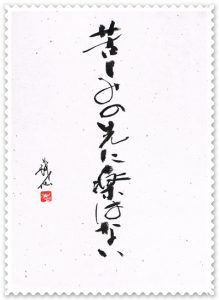 苦しみの先に楽はない